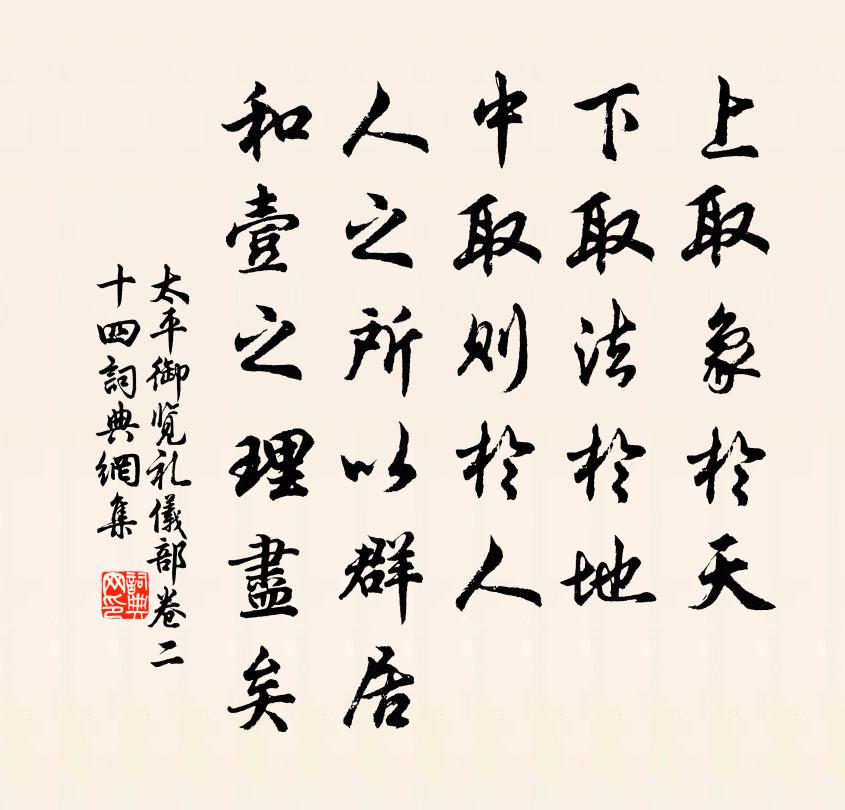 上取象於天
下取法於地
中取则於人
人之所以群居
和壹之理盡矣
太平御览礼儀部卷二
十四詞典網集
詞典网印